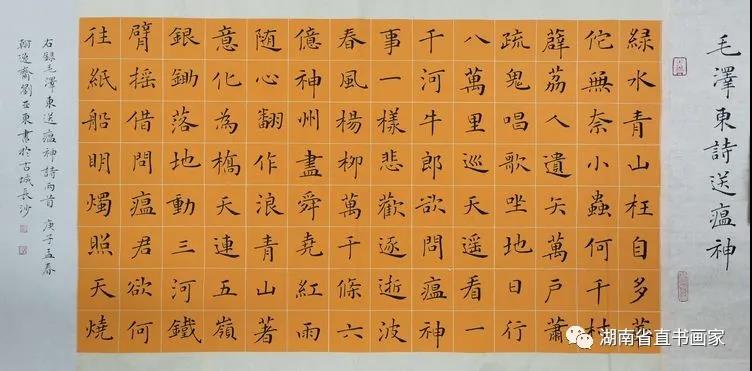 毛澤東詩送瘟神
緑水青山枉自多華
佗無奈小蟲何千村
薜荔人遺矢萬戶蕭
疏鬼唱歌坐地日行
八萬里巡天遥看一
千河牛郎欲問瘟神
事一樣悲歡逐逝波
春風楊柳萬千條六
億神州盡舜堯紅雨
随心翻作浪青山著
意化為橋天連五嶺
銀鋤落地動三河鐵
臂摇借問瘟君欲何
往紙船明燭照天燒
右録毛澤東送瘟神詩兩首 庚子孟春
翰逸齋劉亞東書於古城長沙
湖南省直书画家